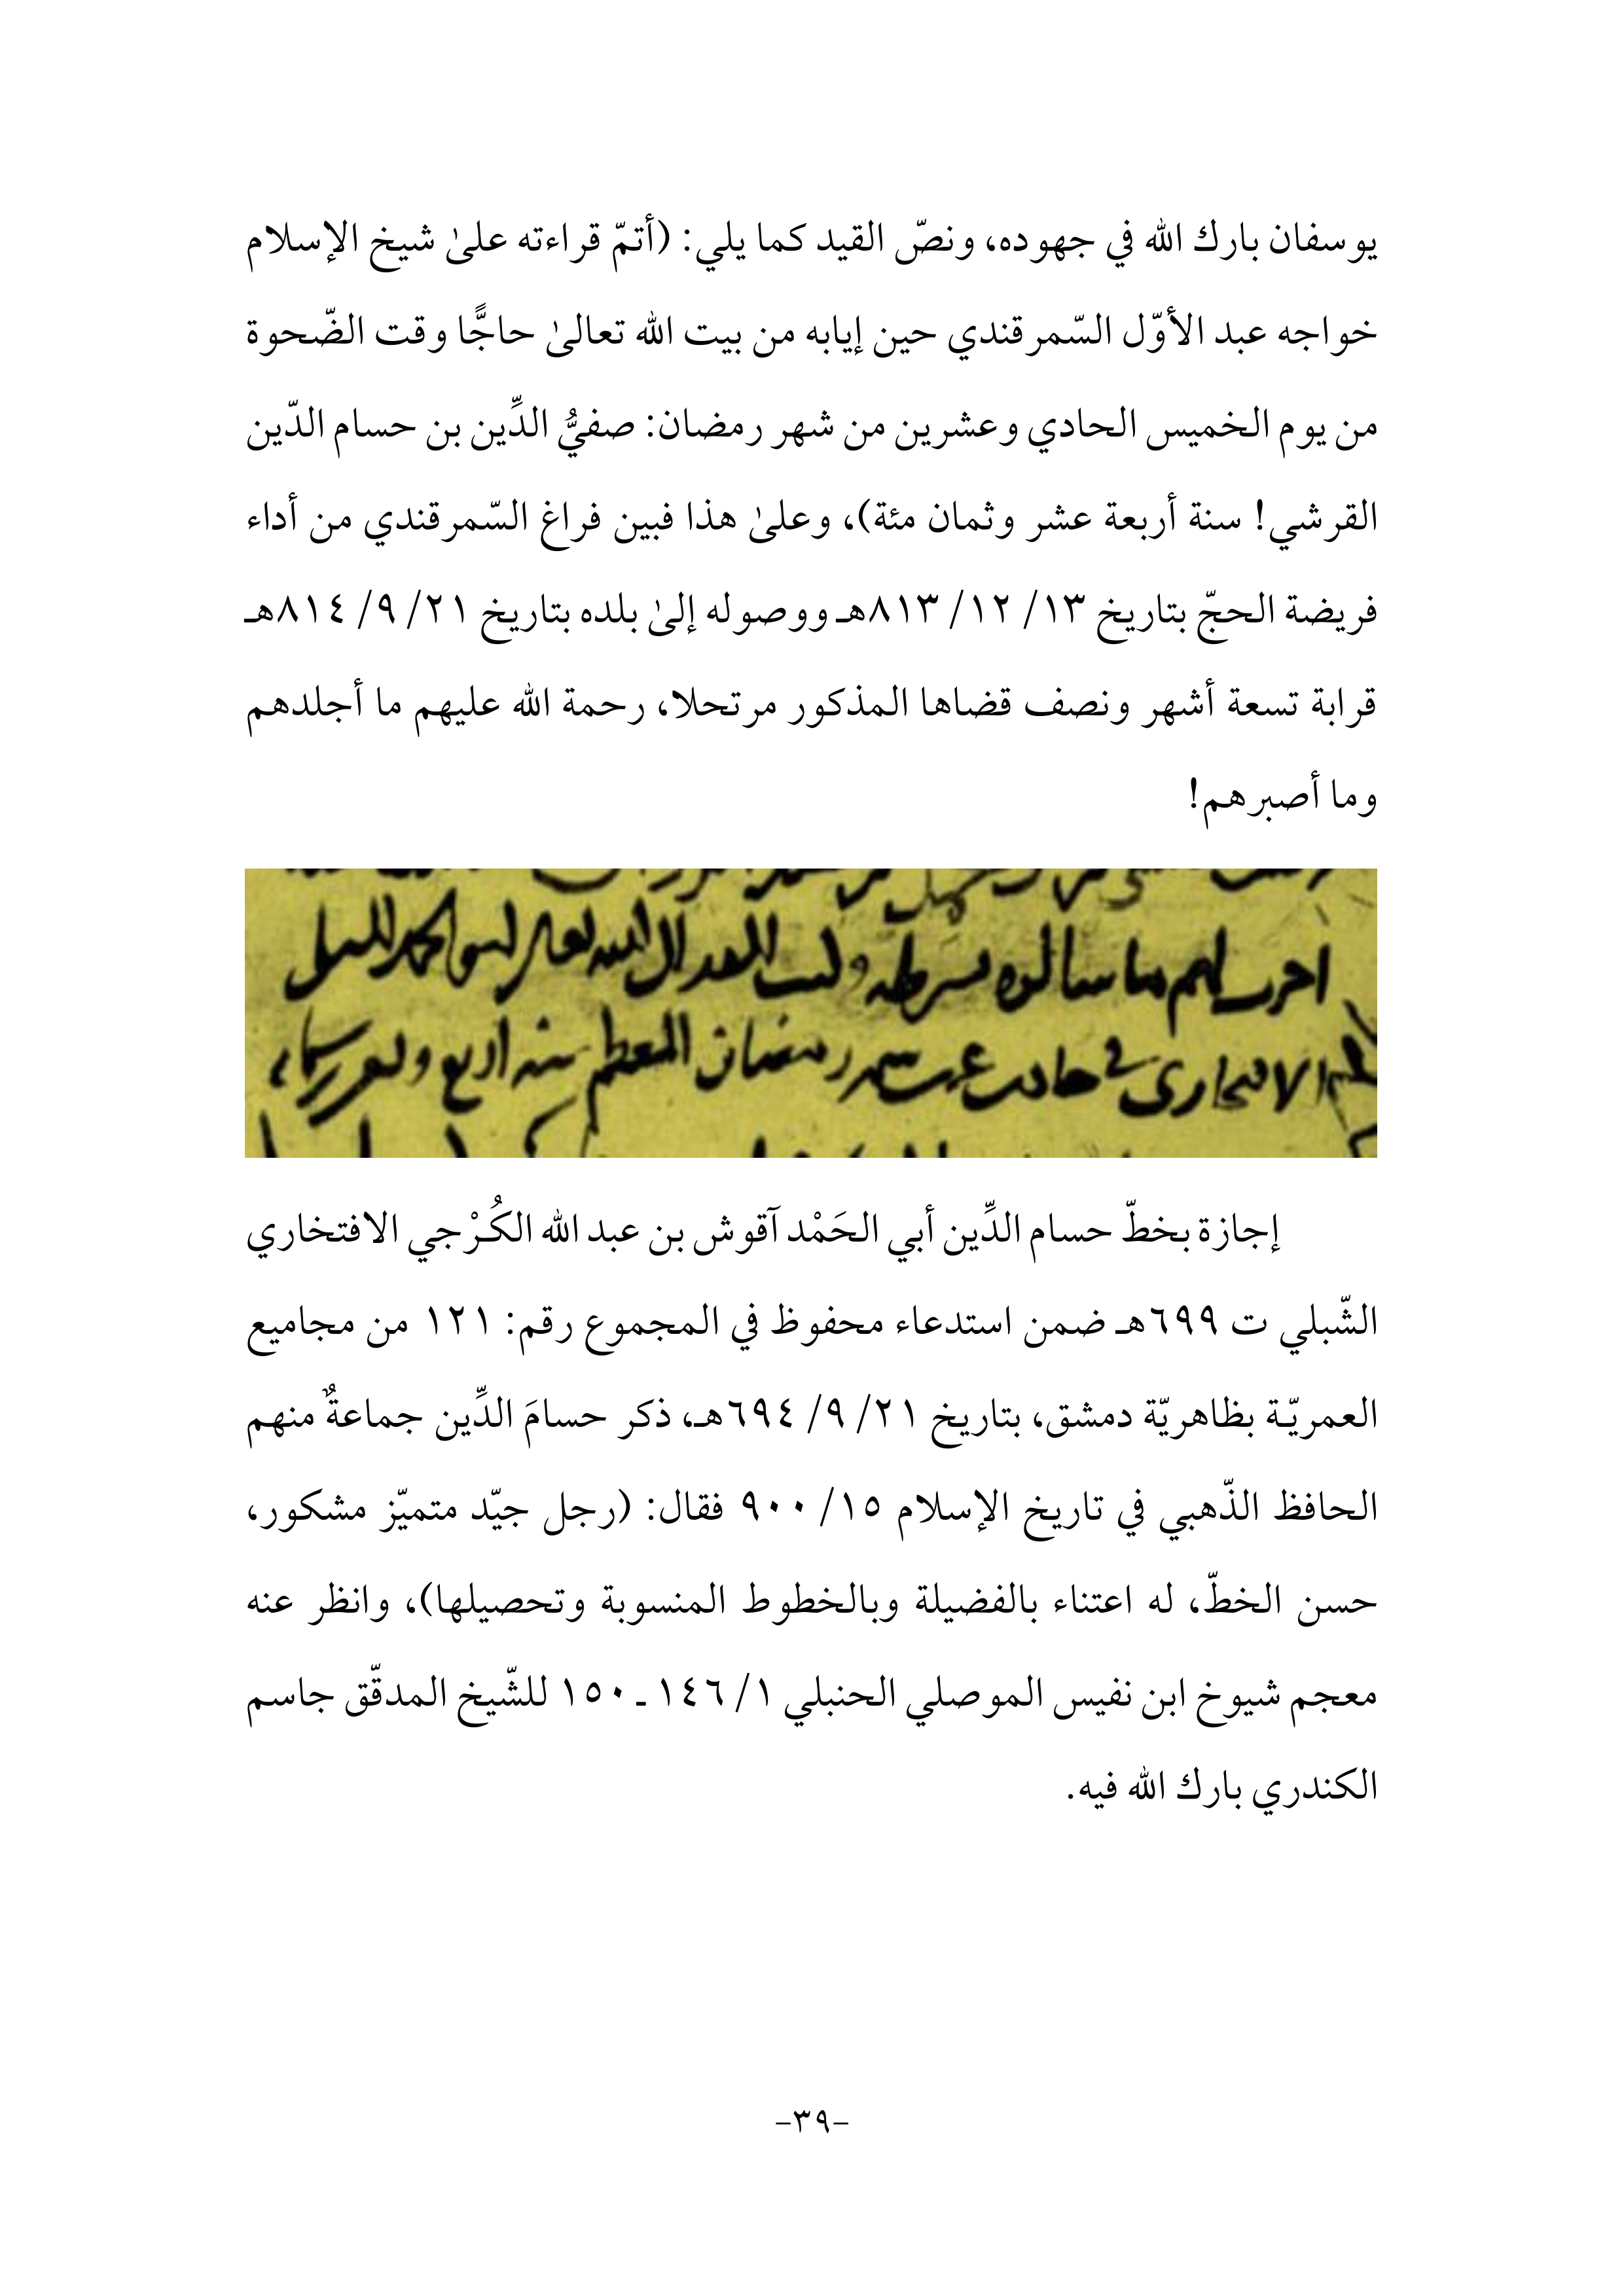 يوسفان بارك الله في جهوده، ونصّ القيد كما يلي: (أتمّ قراءته علىٰ شيخ الإسلام
خواجه عبد الأوّل السّمرقندي حين إيابه من بيت الله تعالىٰ حاجًّا وقت الضّحوة
من يوم الخميس الحادي وعشرين من شهر رمضان: صفيُّ الدِّين بن حسام الدّين
القرشي! سنة أربعة عشر وثمان مئة)، وعلىٰ هذا فبين فراغ السّمرقندي من أداء
فريضة الحجّ بتاريخ ١٣/ ١٢/ ٨١٣هـ ووصوله إلىٰ بلده بتاريخ ٢١/ ٩/ ٨١٤هـ
قرابة تسعة أشهر ونصف قضاها المذكور مرتحلا، رحمة الله عليهم ما أجلدهم
وما أصبرهم!
لهم ما سالوه بشرطه وكتب
الافتخاري في حادي عشر رمضان المعظم سنة اربع
إجازة بخطّ حسام الدِّين أبي الحَمْد آقوش بن عبد الله الكُرْجي الافتخاري
الشّبلي ت ٦٩٩هـ ضمن استدعاء محفوظ في المجموع رقم: ١٢١ من مجاميع
العمريّة بظاهريّة دمشق، بتاريخ ٢١/ ٩/ ٦٩٤هـ، ذكر حسامَ الدِّين جماعةٌ منهم
الحافظ الذّهبي في تاريخ الإسلام ١٥/ ٩٠٠ فقال: (رجل جيّد متميّز مشكور،
حسن الخطّ، له اعتناء بالفضيلة وبالخطوط المنسوبة وتحصيلها)، وانظر عنه
معجم شيوخ ابن نفيس الموصلي الحنبلي ١/ ١٤٦ ـ ١٥٠ للشّيخ المدقّق جاسم
الكندري بارك الله فيه.
-٣٩-